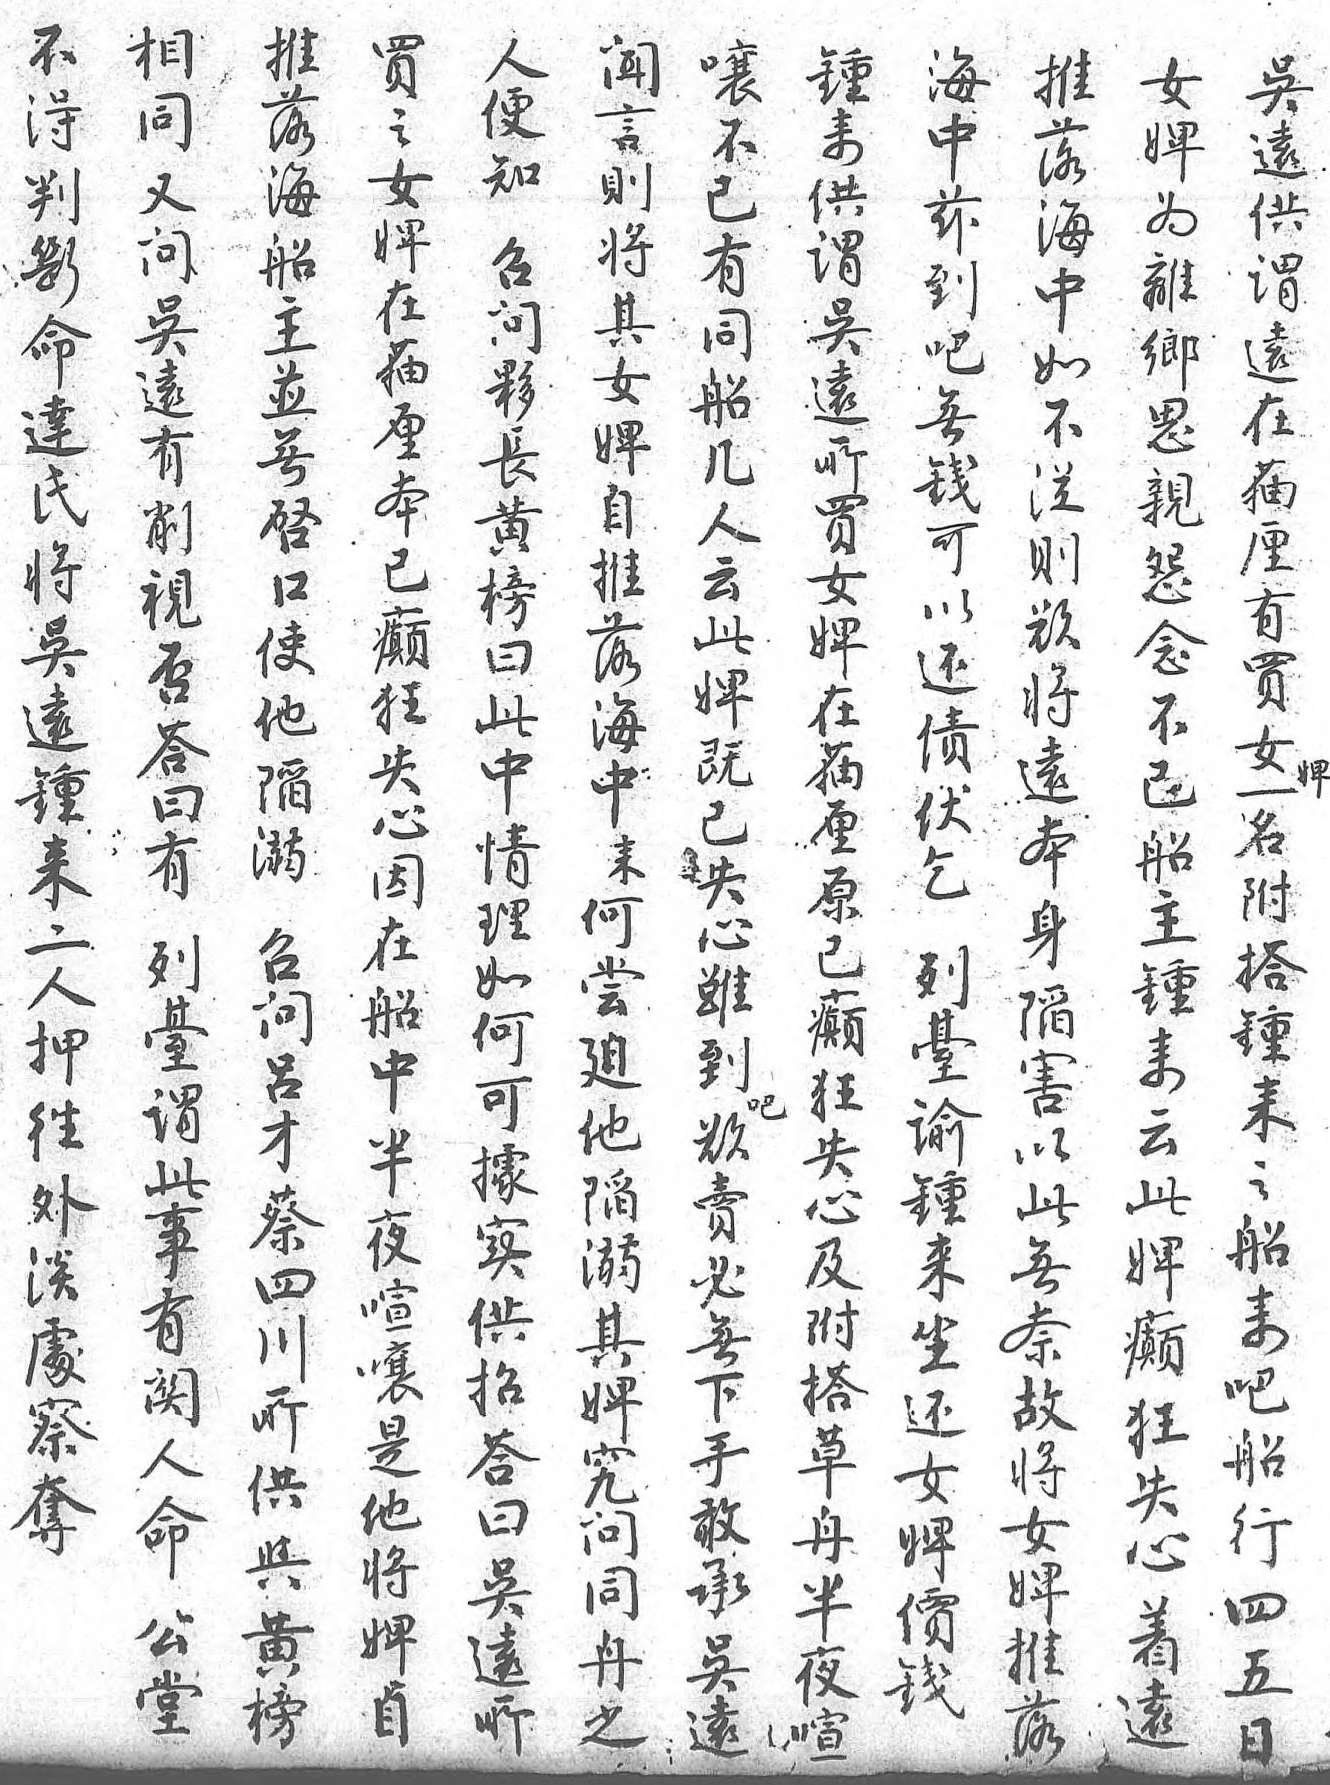 吳遠供謂遠在猫厘有買女婢一名附搭鍾来之船来吧船行四五日
女婢为離鄉思親怨念不已船主鍾来云此婢癲狂失心着遠
推落海中如不從則欲將遠本身陷害以此無奈故將女婢推落
海中茲到吧無錢可以还債伏乞 列臺諭鍾来坐还女婢價錢
鍾来供謂吳遠所買女婢在猫厘原已癲狂失心及附搭草舟半夜喧
嚷不已有同船几人云此婢既已失心雖到吧欲賣必無下手敢承吳遠
闻言則將其女婢自推落海中来何尝廹他陷溺其婢究问同舟之
人便知 召问夥長黄榜曰此中情理如何可據实供招荅曰吳遠所
買之女婢在猫厘本已癲狂失心因在船中半夜喧嚷是他將婢自
推落海船主並無啓口使他陷溺 召问吕才蔡四川所供與黄榜
相同又问吳遠有削視否荅曰有 列臺謂此事有関人命 公堂
不得判斷命達氏將吳遠鍾来二人押往外淡處察奪